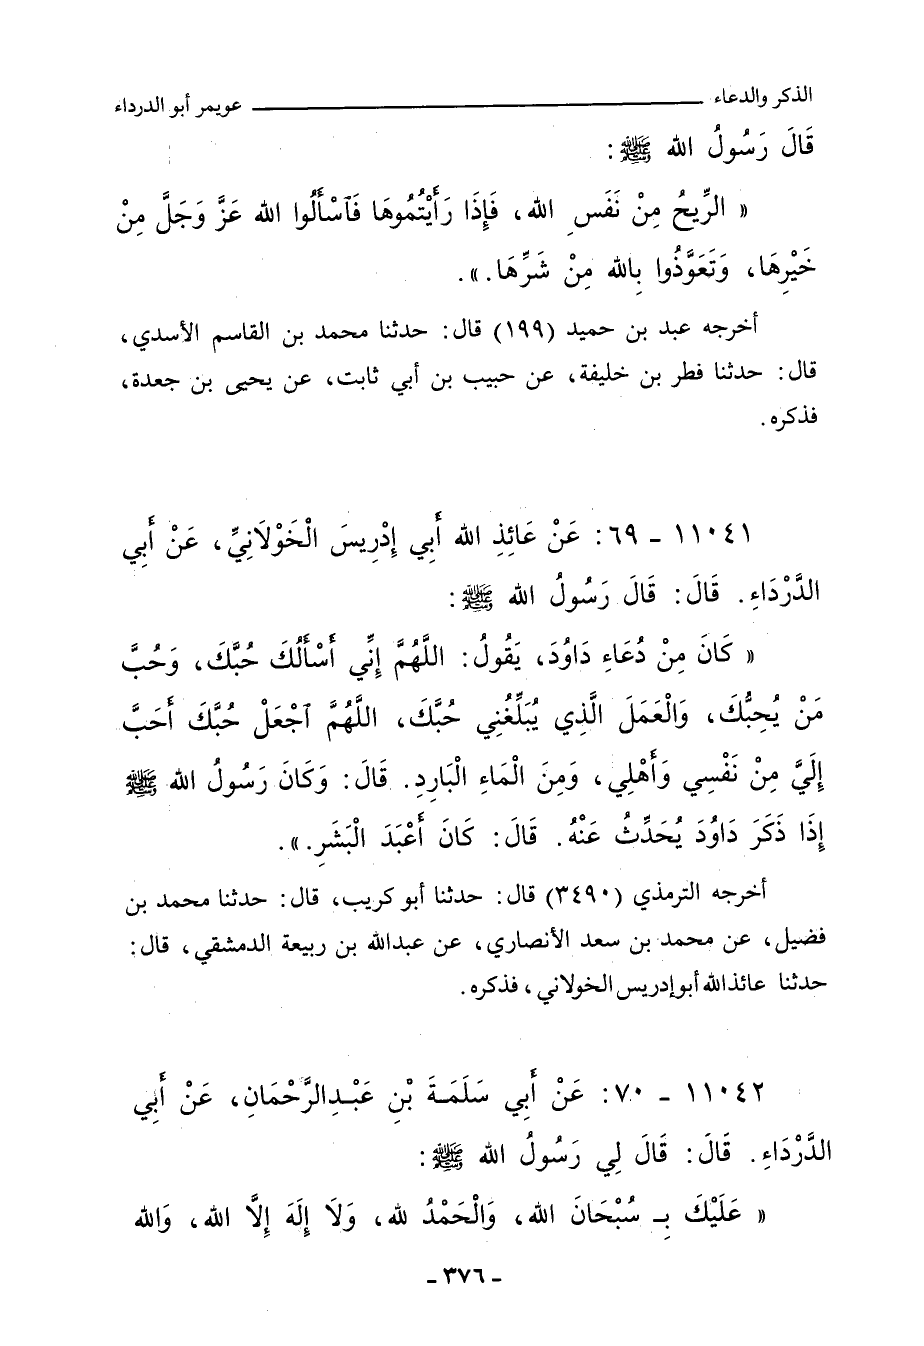 الذكر والدعاء ـــــــــــــــــــــــــ عويمر أبو الدرداء
قَالَ رَسُولُ اللهِ ﷺ :
« الرِّيحُ مِنْ نَفَسِ اللهِ ، فَإِذَا رَأَيْتُمُوهَا فَٱسْأَلُوا اللهَ عَزَّ وَجَلَّ مِنْ
خَيْرِهَا، وَتَعَوَّذُوا بِاللهِ مِنْ شَرِّهَا . ».
أخرجه عبد بن حميد (١٩٩) قال: حدثنا محمد بن القاسم الأسدي ،
قال: حدثنا فطر بن خليفة، عن حبيب بن أبي ثابت، عن يحيى بن جعدة،
فذكره .
١١٠٤١ - ٦٩: عَنْ عَائِذِ اللهِ أَبِي إِدْرِيسَ الْخَوْلَانِيِّ، عَنْ أَبِي
الدَّرْدَاءِ. قَالَ: قَالَ رَسُولُ اللهِ ﷺ :
« كَانَ مِنْ دُعَاءِ دَاوُدَ، يَقُولُ: اللَّهُمَّ إِنِّي أَسْأَلُكَ حُبَّكَ، وَحُبَّ
مَنْ يُحِبُّكَ، وَالْعَمَلَ الَّذِي يُبَلِّغُنِي حُبَّكَ، اللَّهُمَّ ٱجْعَلْ حُبَّكَ أَحَبَّ
إِلَيَّ مِنْ نَفْسِي وَأَهْلِي، وَمِنَ الْمَاءِ الْبَارِدِ. قَالَ: وَكَانَ رَسُولُ اللهِ ﷺ
إِذَا ذَكَرَ دَاوُدَ يُحَدِّثُ عَنْهُ. قَالَ: كَانَ أَعْبَدَ الْبَشَرِ. ».
أخرجه الترمذي (٣٤٩٠) قال: حدثنا أبو كريب، قال: حدثنا محمد بن
فضيل، عن محمد بن سعد الأنصاري، عن عبدالله بن ربيعة الدمشقي، قال:
حدثنا عائذالله أبو إدريس الخولاني ، فذكره .
١١٠٤٢ - ٧٠: عَنْ أَبِي سَلَمَةَ بْنِ عَبْدِالرَّحْمَانِ، عَنْ أَبِي
الدَّرْدَاءِ. قَالَ: قَالَ لِي رَسُولُ اللهِ ﷺ :
« عَلَيْكَ بِـ سُبْحَانَ اللهِ، وَالْحَمْدُ للهِ، وَلَا إِلَهَ إِلَّا اللهُ، وَاللهُ
- ٣٧٦ -